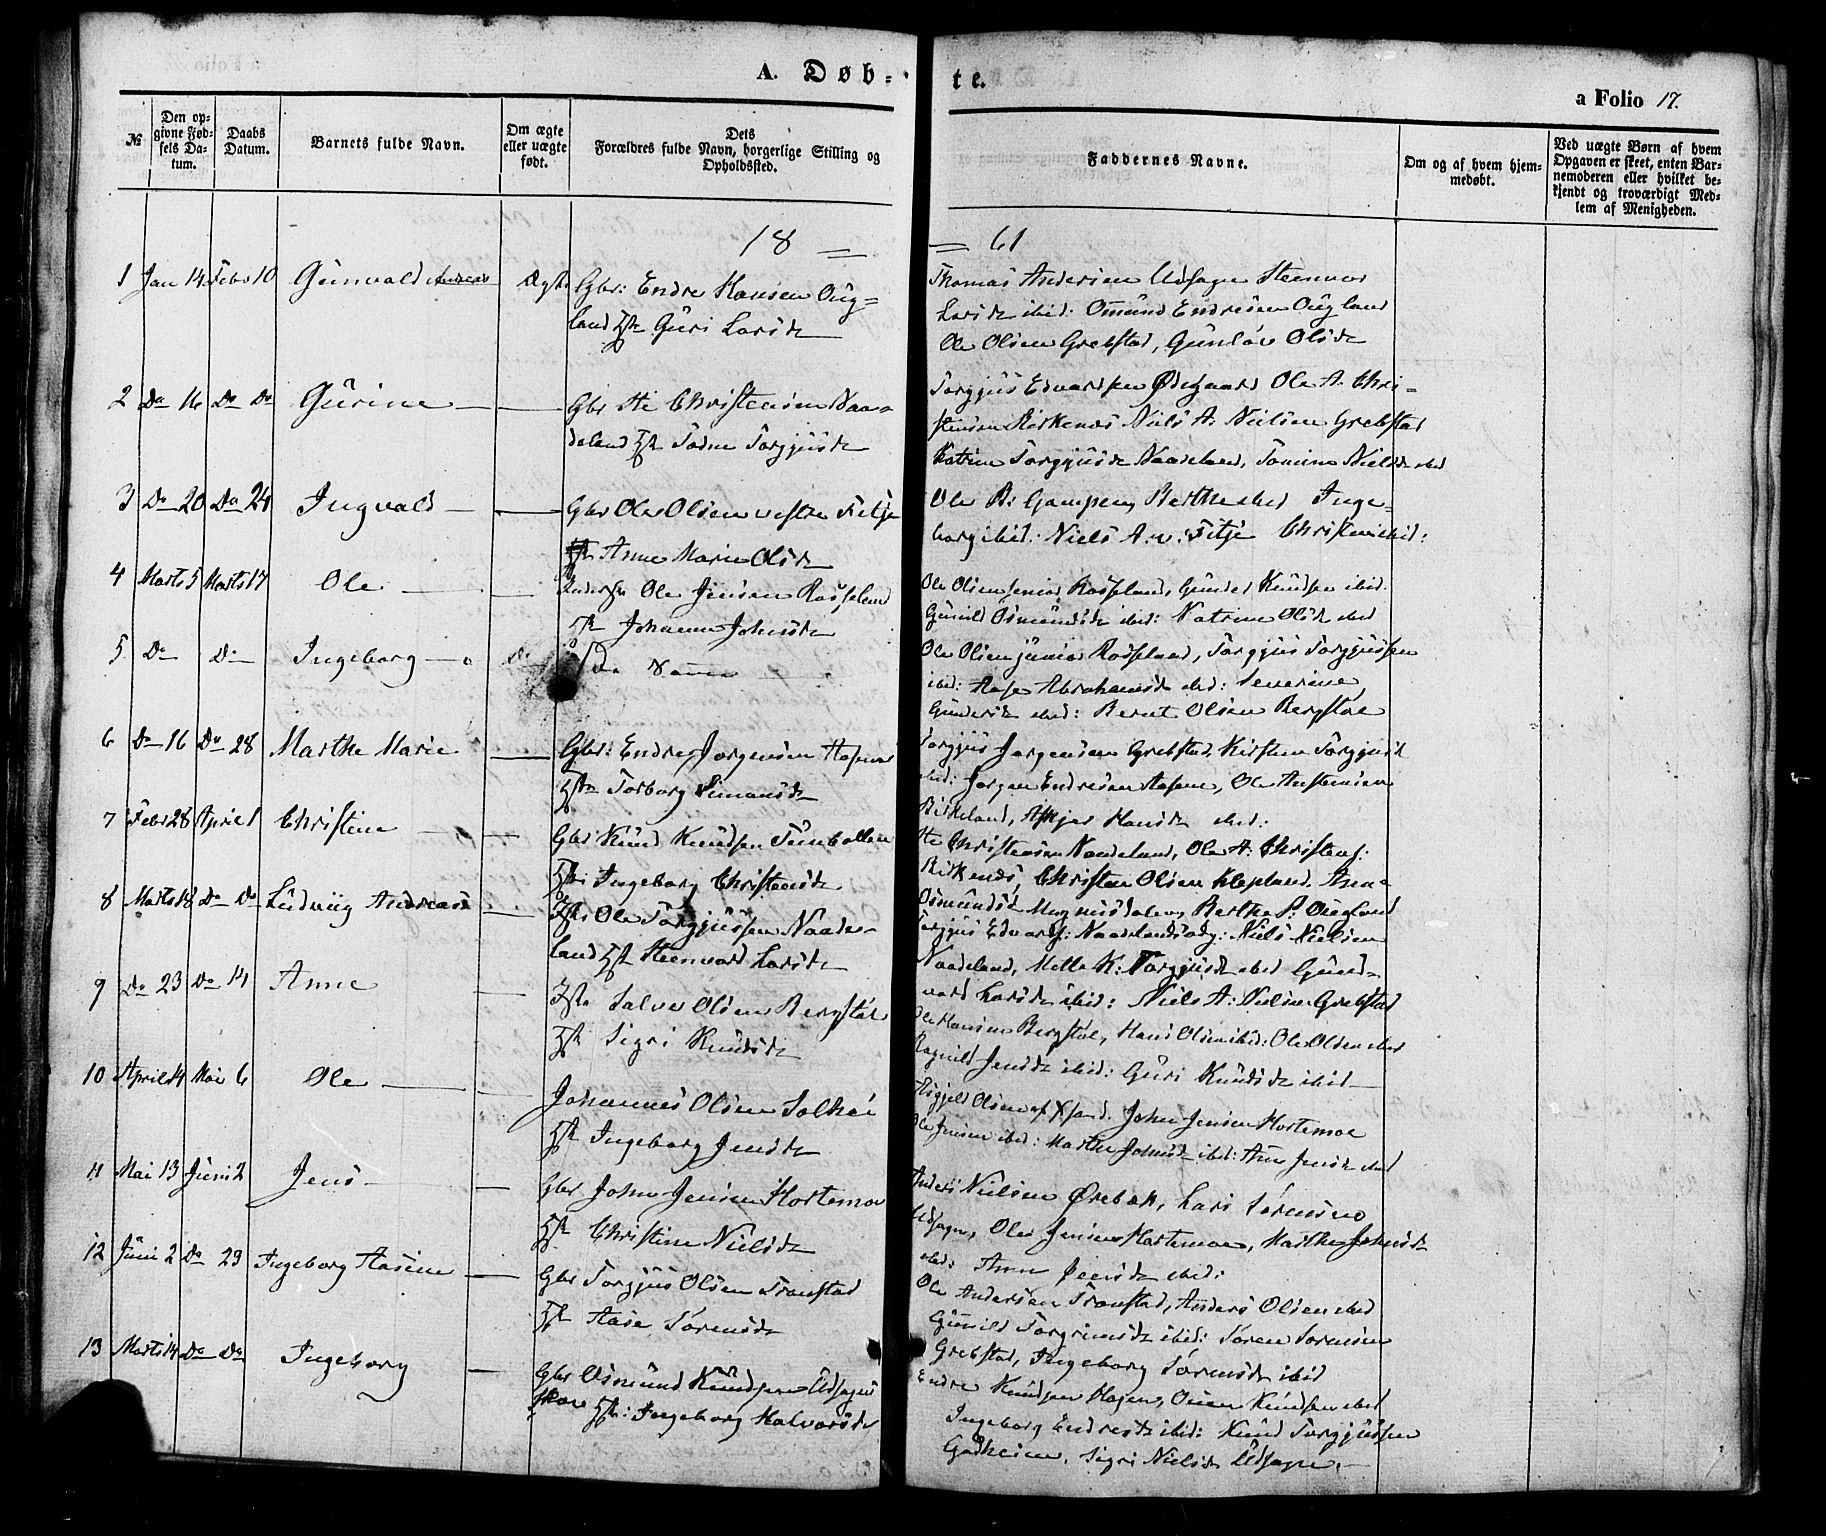 A. Døb-
te.
a Folio 17.
№
Den opgivne Fødsels Datum.
Daabs Datum.
Barnets fulde Navn.
Om ægte eller uægte født.
Dets Forældres fulde Navn, borgerlige Stilling og Opholdssted.
Faddernes Navne.
Om og af hvem hjemmedøbt.
Ved uægte Børn af hvem Opgaven er skeet, enten Barnemoderen eller hvilket bekjendt og troværdigt Medlem af Menigheden.
18 = = 61
1 Jan 14 Febr 10 Gunvald Ægte Gbr: Endre Hansen Oug-
land Guri Larsd
Thomas Andersen Udsagn Steenvor
Larsd ibid: Omund Endresen Ougland
Ole Olsen Grebstad, Gunlov Olsd
2 Do 16 Do Do Gurine Gbr Christensen Naa-
deland Torgjusd
Torgjus Edvardsen Ødegaard Ole A. Chri-
stensen Birkenes Niels A. Nielsen Grebstad
Katrine Torgjusd Naadeland, Tomine Nielsd ibid
3 Do 20 Do 24 Ingvald Gbr Ole Olsen vestre Fitje
Anne Marie Olsd
Ole Berthe ibid Inge-
borg ibid: Niels A. v: Fitje ibid:
4 Marts 5 Marts 17 Ole Ole Jensen Rosseland
Johanne Johnsd
Ole Olsen senior Rosseland, Gunder Knudsen ibid.
Gunild Osmundsd ibid: Katrine Olsd ibid
5 Do Do Ingeborg Do Do
Ole Olsen junior Rosseland, Torgjus Torgjussen
ibid: Aase Abrahamsd ibid: Severine
Gundersd ibid: Bernt Olsen Bergstøl
6 Do 16 Do 28 Marthe Marie Gbr: Endre Jørgensen Aasene
Torborg Simonsd
Torgjus Jørgensen Grebstad, Kirsten Torgjusd
ibid: Jørgen Endresen Aasene, Ole Austensen
Birkeland, Askjer Hansd ibid:
7 Febr 28 April 1 Christine Gbr Knud Knudsen Tunbollen
Ingeborg Christensd
Christensen Naadeland, Ole A: Christens:
Birkenes, Christen Olsen Klepland. Anne
Osmundsd Berthe P: Ougland
8 Marts 18 Do Do Ludvig Andreas Ole Torgjussen Naade-
land Steenvord Larsd
Torgjus Edvards: Naadelandsødg: Niels Nielsen
Naadeland, Mette K: Torgjusd ibid Gund-
vord Larsd ibid: Niels A: Nielsen Grebstad
9 Do 23 Do 14 Anne Salve Olsen Bergstøl
Sigri Knudsd
Ole Hansen Bergstøl, Hans Olsen ibid: Ole Olsen ibid
Ragnild Jensd ibid: Guri Knudsd ibid
10 April 14 Mai 6 Ole Johannes Olsen
Ingeborg Jensd
Olsen af Xsand. John Jensen Hortemoe
Ole Jensen ibid: Marthe Johnsd ibid: Ane Jensd ibid
11 Mai 13 Juni 2 Jens Gbr John Jensen Hortemoe
Christine Nielsd
Anders Nielsen Ørebæk, Lars Sørensen
Udsagn, Ole Jensen Hortemoe, Marthe Johnsd
ibid: Anne Jensd ibid:
12 Juni 2 Do 23 Ingeborg Aasine Gbr Torgjus Olsen Tronstad
Aase Sørensd
Ole Andersen Tronstad, Anders Olsen ibid
Gunild Torgrimsd ibid: Søren Sørensen
Grebstad, Ingeborg Sørensd ibid
13 Marts 14 Do Do Ingeborg Gbr Osmund Knudsen Udsagns
skov Ingeborg Halvorsd
Endre Knudsen Hagen, Knudsen ibid
Ingeborg Endresd ibid: Knud Torgjussen
Godheim, Sigri Nielsd Udsagn.